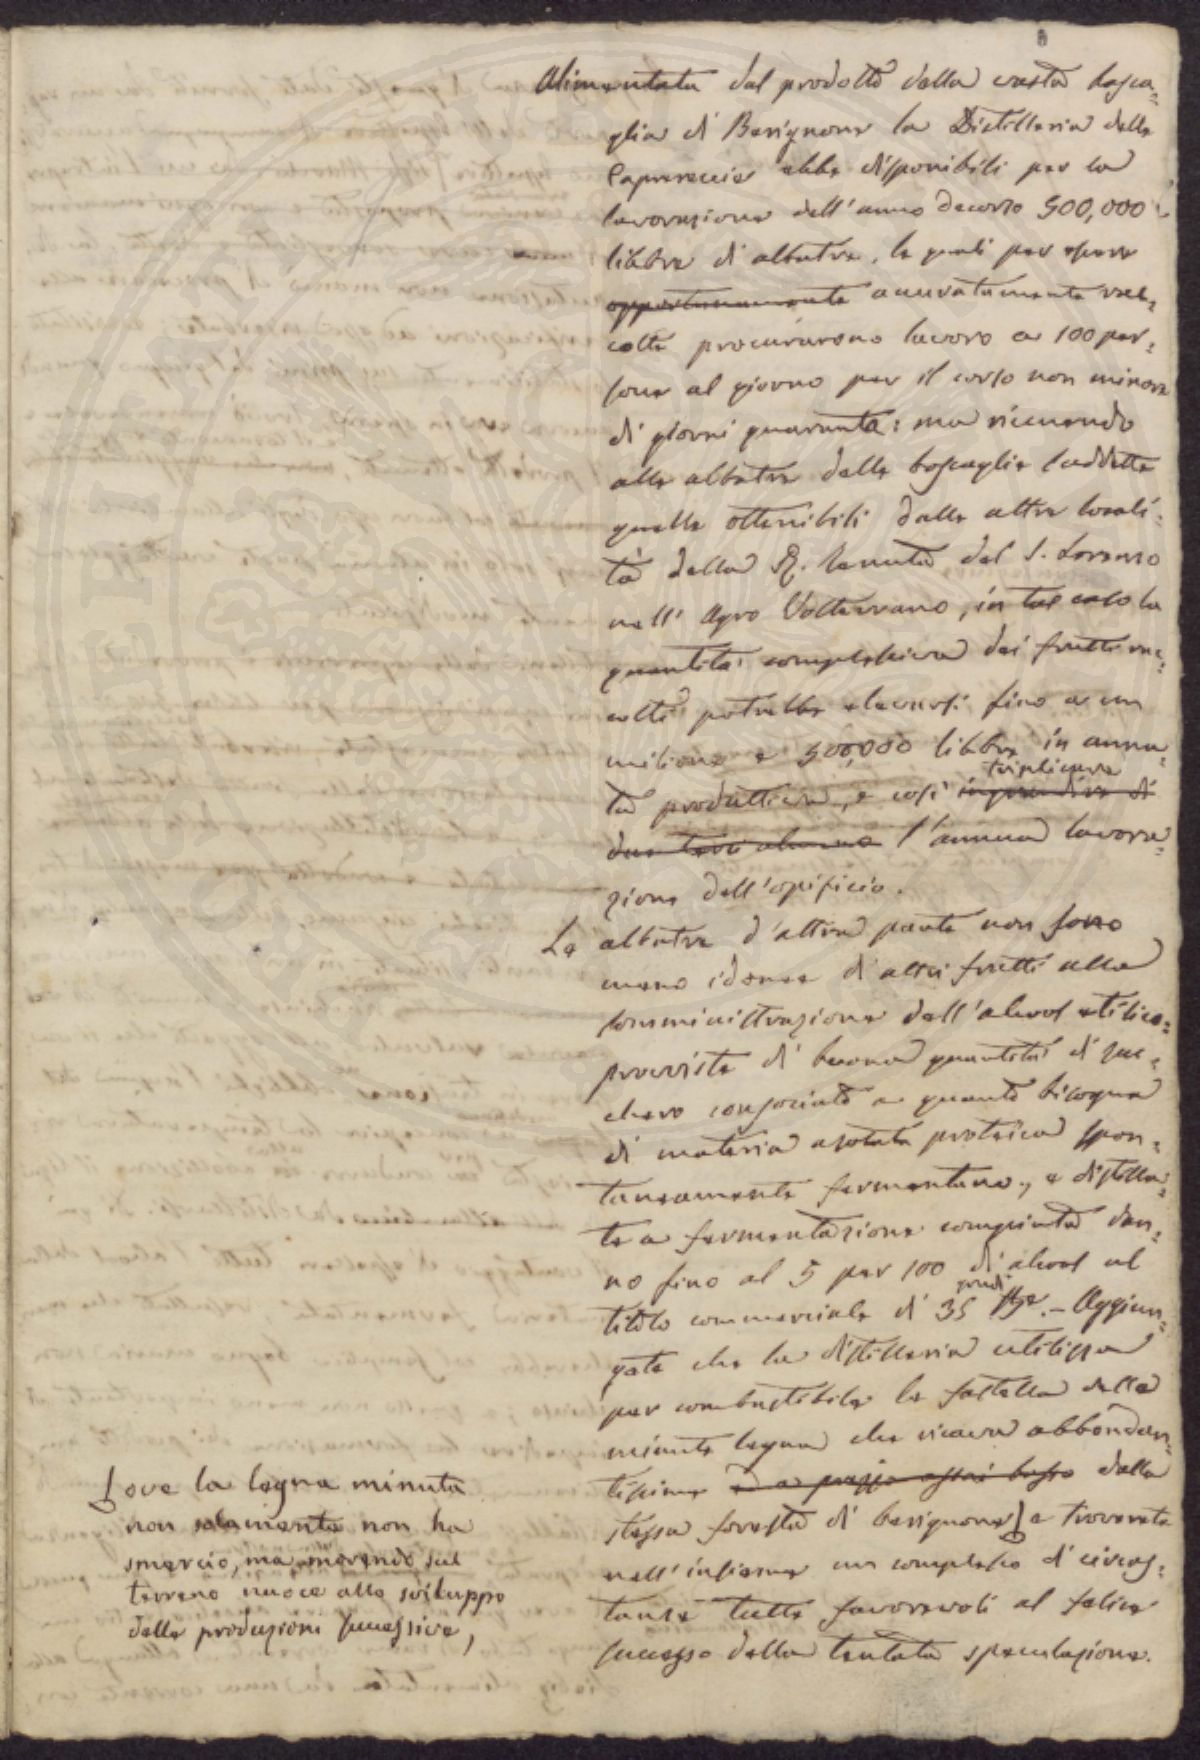 Alimentata dal prodotto della vasta bosca=
glia di Berignone la Distilleria delle
Caprereccie ebbe disponibili per la
lavorazione dell'anno decorso 500,000
libbre di albatre, le quali per essere
opportunamente accuratamente rac=
colte procurarono lavoro a 100 per=
sone al giorno per il corso non minore
di giorni quaranta: ma riunendo
alle albatre delle boscaglie suddette
quelle ottenibili dalle altre locali=
tà della R. Tenuta del S. Lorenzo
nell'Agro Volterrano, in tal caso la
quantità complessiva dei frutti rac=
colti potrebbe elevarsi fino a un
milione e 500,000 libbre in anna=
triplicare
ta produttiva, e così ingrandire di
due terzi almeno l'annua lavora=
zione dell'opificio.
Le albatre d'altra parte non sono
meno idonee di altri frutti alla
somministrazione dell'alcool etilico=
provviste di buona quantità di zuc=
chero consociato a quanto bisogna
di materia azotata proteica spon=
taneamente fermentano, e distilla=
te a fermentazione compiuta dan=
no fino al 5 per 100 di alcool al
gradi
titolo commerciale di 35 – Aggiun=
gete che la distilleria utilizza
per combustibile le fastella della
minuta legna che ricava abbondan=
tissima e a prezzo assai basso dalla
stessa foresta di berignone e troverete
nell'insieme un complesso di circos=
tanze tutte favorevoli al felice
successo della tentata speculazione.
dove la legna minuta
non solamente non ha
smercio, ma morendo sul
terreno nuoce allo sviluppo
delle produzioni successive,